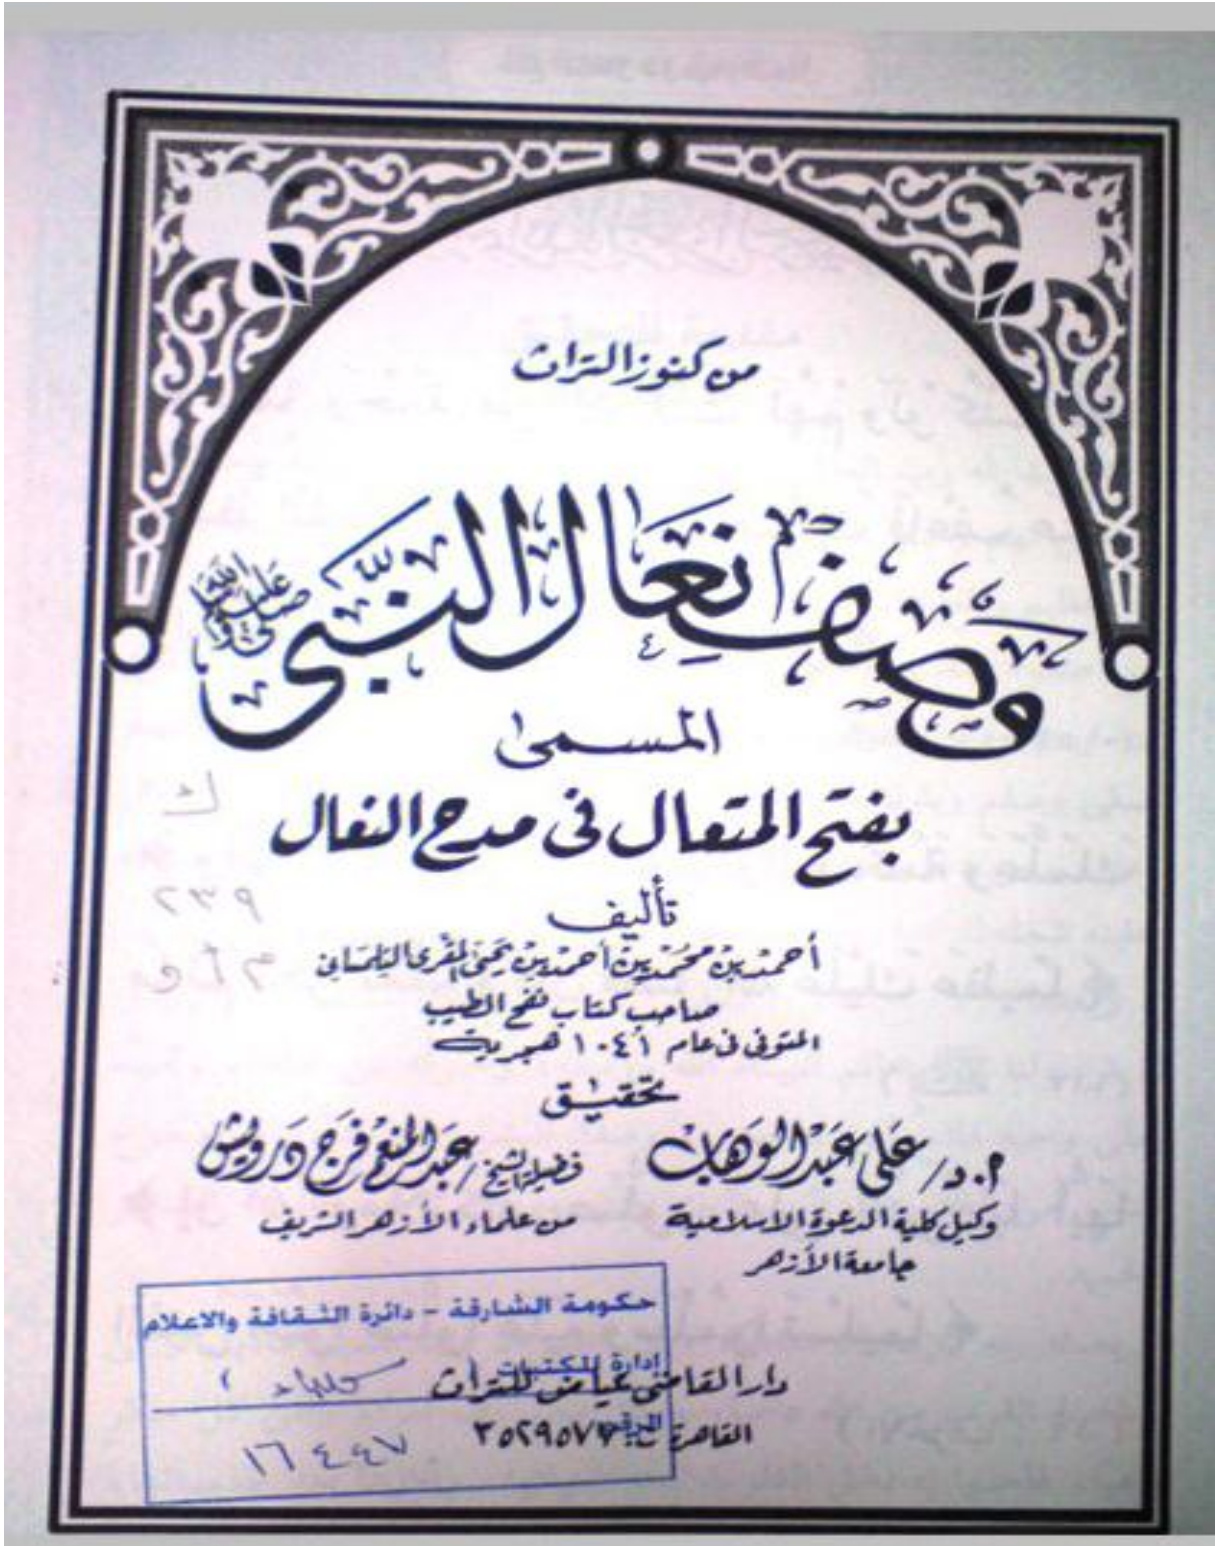 من كنوز التراث
وصف نعال النبى صلى الله عليه وسلم
المسمى
بفتح المتعال فى مدح النعال
تأليف
أحمد بن محمد بن أحمد بن يحيى المقرى التلمسانى
صاحب كتاب نفح الطيب
المتوفى فى عام ١٠٤١ هجرية
تحقيق
م.د/ على عبد الوهاب
وكيل كلية الدعوة الإسلامية
جامعة الأزهر
فضيلة الشيخ/ عبد المنعم فرج درويش
من علماء الأزهر الشريف
دار القاضى عياض للتراث
القاهرة ت:
حكومة الشارقة - دائرة الثقافة والاعلام
إدارة المكتبات
الرقم
١٦٤٤٧
ك
٢٣٩